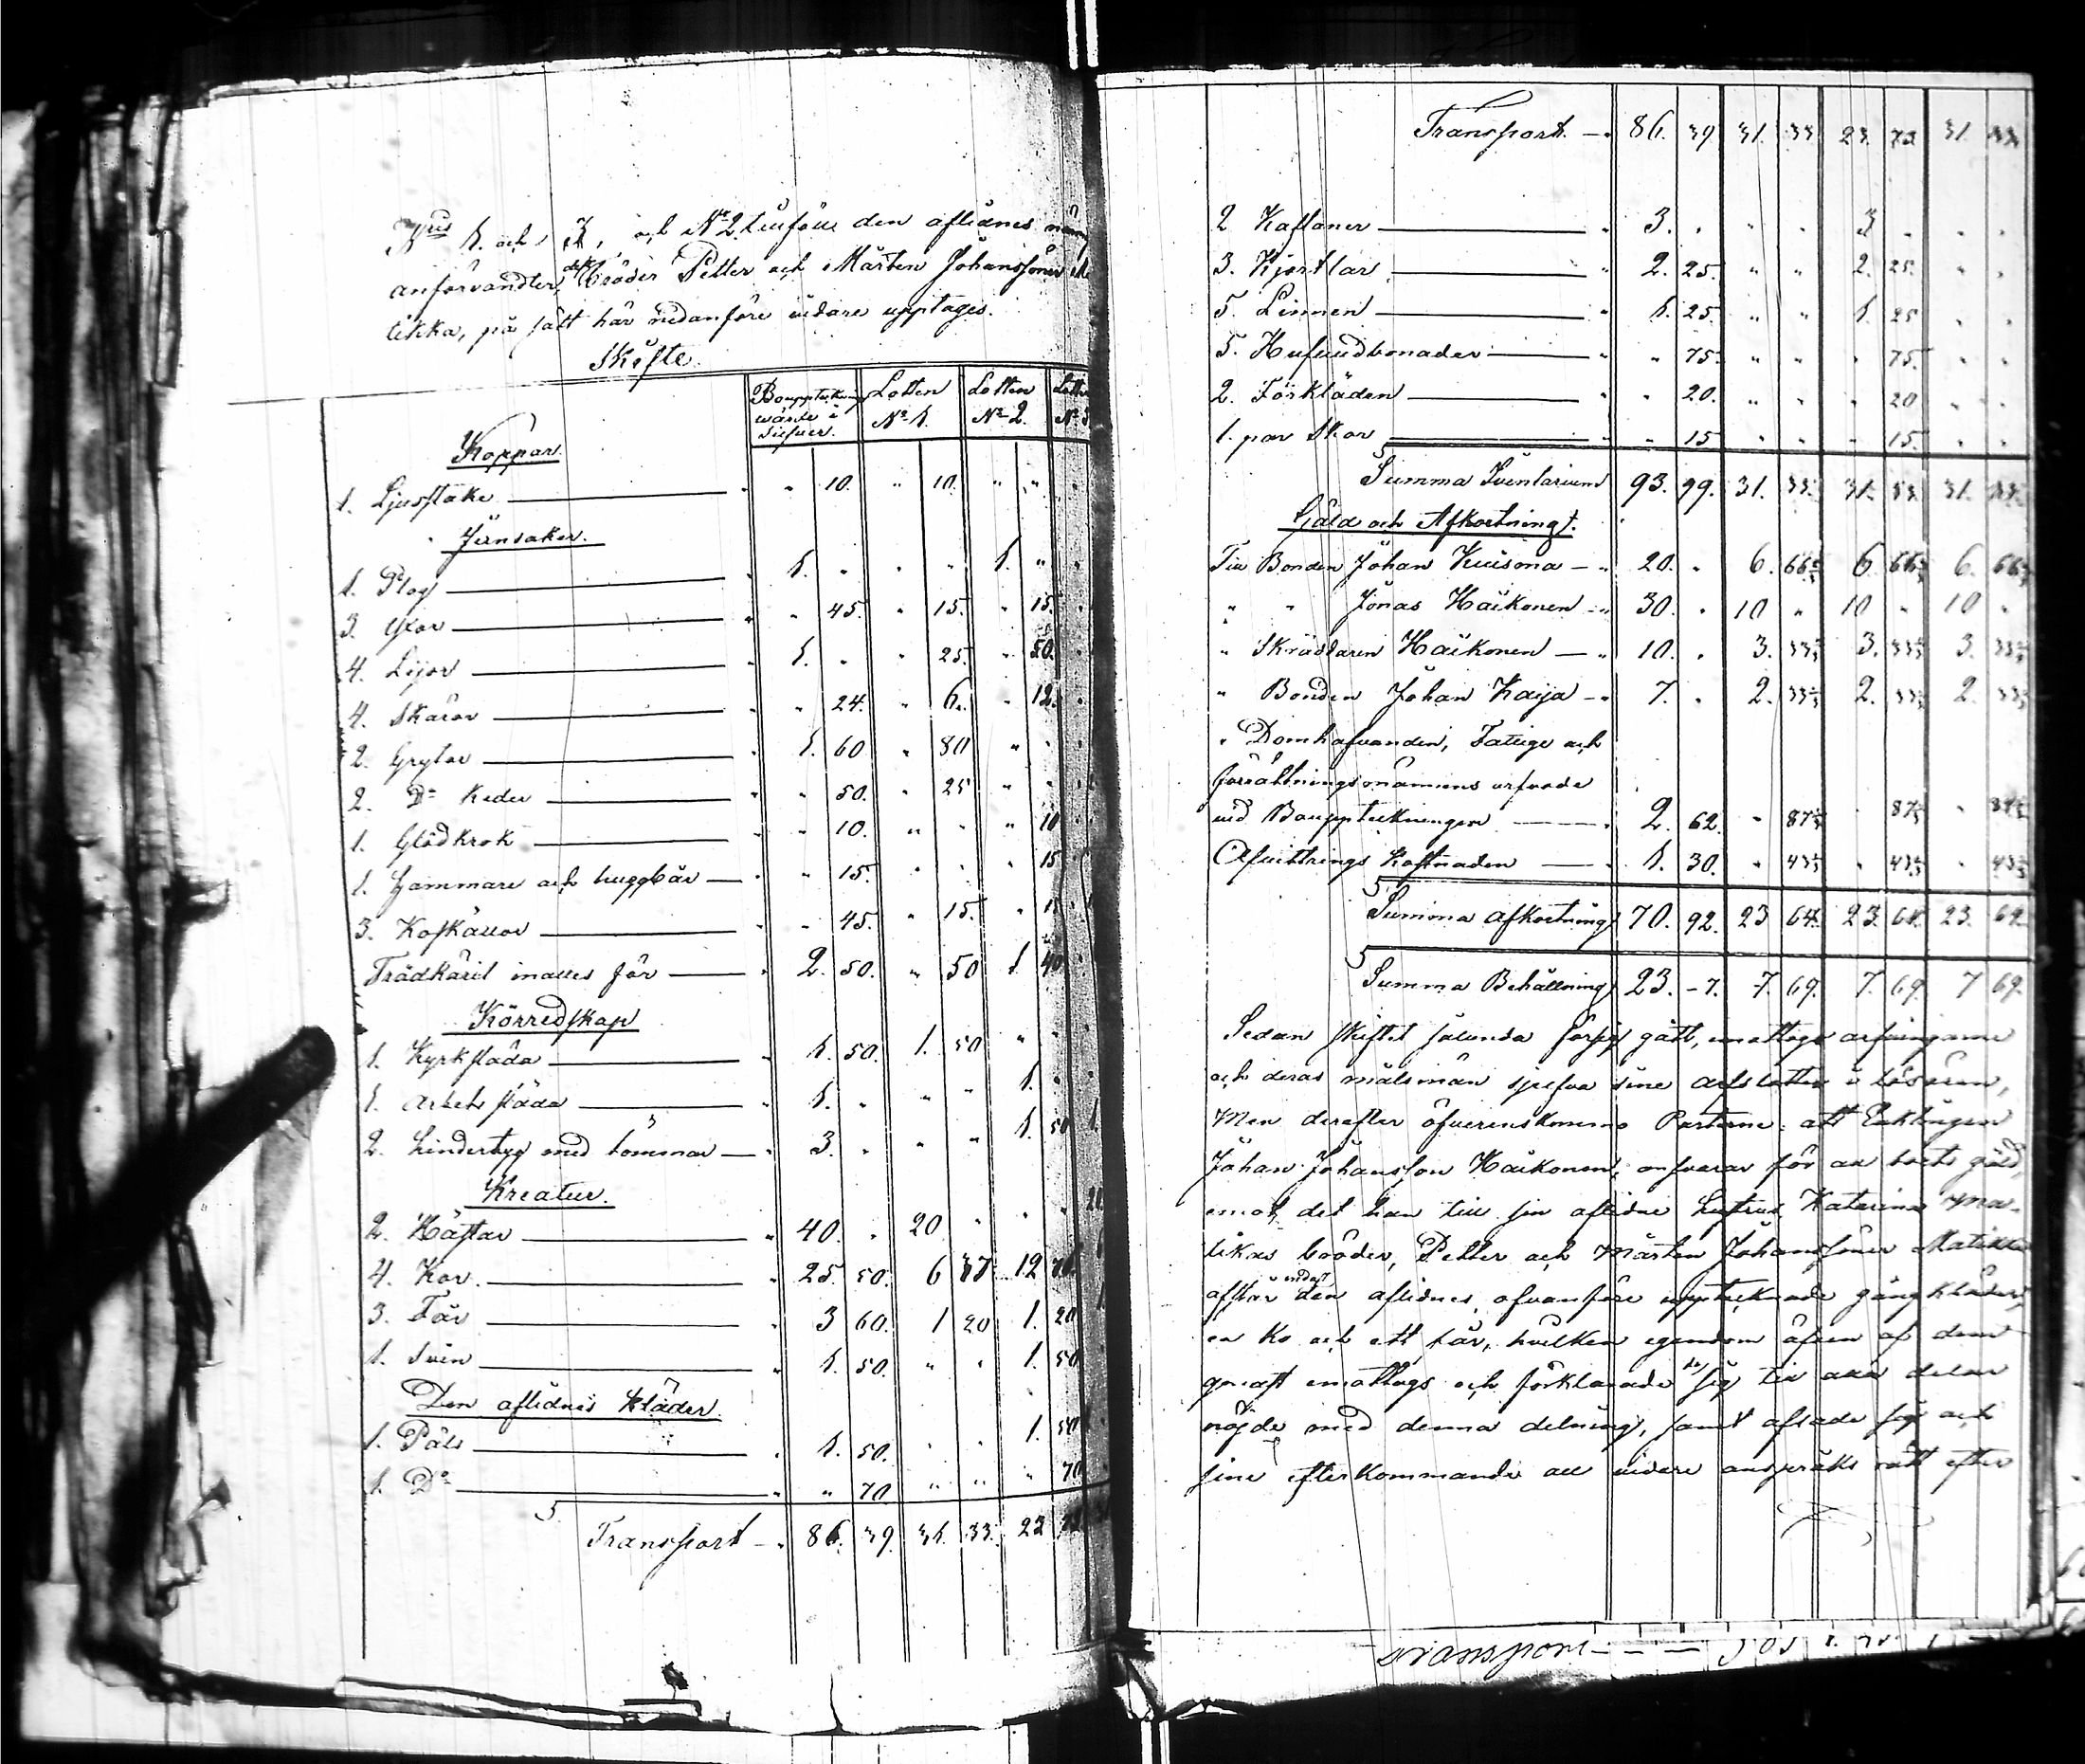 N:ris 1. och 3, och N:o 2 tillföll den aflidnes
anförvandter, Bröder Petter och Mårten Johanssöner
likka, på sätt här nedanföre vidare upptages.
Skifte.
Bouppteckning wärde i Silfver. Lotten N:o 1. Lotten N:o 2. N:o 3
Koppar.
1. Ljusstake " 10. " 10. " "
Jernsaker.
1. Plog 1. " " " 1. "
3. Yxor " 45. " 15. " 15.
4. Lijor 1. " " 25. " 50.
4. Skäror " 24. " 6. " 12.
2. Grytor 1. 60 " 80 " "
2. D:o Keder " 50. " 25 " "
1. Glödkrok " 10. " " " 10
1. Hammare och huggbär " 15. " " " 15
3. Koskällor " 45. " 15. " 15
Trädkäril inalles för 2. 50. " 50 1. 40
Körredskap
1. Kyrksläda 1. 50. 1. 50 " "
1. Arbets släda 1. " " " 1. "
2. Lindertyg med tömmar 3. " " " 1. 50
Kreatur.
2. Hästar 40. " 20 " " "
4. Kor. 25. 50. 6 12
3. Får 3 60. 1 20 1. 20
1. Svin 1. 50. " " 1. 50
Den aflidnes Kläder.
1. Päls 1. 50. " " 1. 50
1. D:o " 70 " " " 70
Transport 86. 39. 31. 33. 23
Transport 86. 39 31. 33 23. 72 31. 33
2 Kaftaner 3. " " " 3 " " "
3. Kjortlar 2. 25. " " 2. 25. " "
5. Linnen 1. 25. " " 1. 25 " "
5. Hufvudbonader " 75. " " " 75. " "
2. Förkläden " 20. " " " 20 " "
1. par Skor " 15 " " " 15. " "
Summa Inventarium 93. 99. 31. 33. 31. 33. 31. 33.
Gäld och Afkortning.
Till Bonden Johan 20. " 6. 66⅔ 6 66⅔ 6. 66⅔
" " Jonas Haikonen 30. " 10 " 10 " 10 "
" Skräddaren Haikonen 10. " 3. 33⅓ 3. 33⅓ 3. 33⅓
" Bonden Johan Kaija 7. " 2. 33⅓ 2. 33⅓ 2. 33⅓
" Domhafvanden, Fattige och
förrättningsmännens arfvode
vid Bouppteckningen 2. 62. " 87⅓ " 87⅓ " 87⅓
Afvittrings kostnaden 1. 30. " 43⅓ " 43⅓ " 43⅓
Summa Afkortning 70. 92. 23 64. 23. 64. 23. 64.
Summa Behållning 23. 7. 7. 69. 7. 69. 7 69.
Sedan skiftet sålunda försig gått, emottogo arfvingarne
och deras målsmän sjelfva sine arfslotter i lösören,
Men derefter öfverenskommo Parterne: att Enklingen
Johan Johansson Haikonen, ansvarar för all boets gäld,
emot det han till sin aflidne hustrus Katarina Ma-
likas bröder, Petter och Mårten Johanssöner Matikka
afstår endast den aflidnes ofvanföre upptecknade gångkläder,
en Ko och ett får, hvilken egendom äfven af dem
genast emottogs och förklarade de sig till alla delar
nöjde med denna delning, samt afsade sig och
sine efterkommande all vidare anspråks rätt efter
Transport